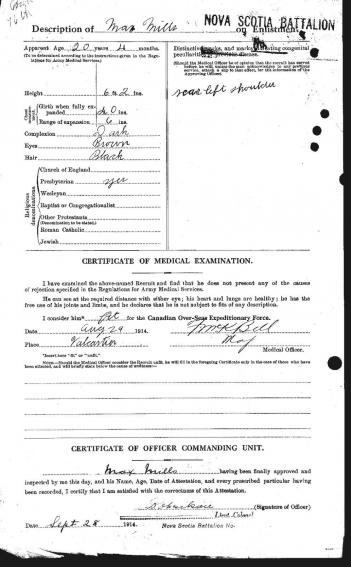 NOVA SCOTIA BATTALION
Description of Max Mills on Enlistment.
Apparent Age 20 years 4 months.
(To be determined according to the instructions given in the Regulations for Army Medical Services.)
Height 6 ft 2 ins.
Chest measurement
Girth when fully expanded 40 ins.
Range of expansion 6 ins.
Complexion Dark
Eyes Brown
Hair Black
Religious denominations
Church of England
Presbyterian yes
Wesleyan
Baptist or Congregationalist
Other Protestants
(Denomination to be stated.)
Roman Catholic
Jewish
Distinctive marks, and marks indicating congenital peculiarities or previous disease.
(Should the Medical Officer be of opinion that the recruit has served before, he will, unless the man acknowledges to any previous service, attach a slip to that effect, for the information of the Approving Officer).
scar left shoulder
CERTIFICATE OF MEDICAL EXAMINATION.
I have examined the above-named Recruit and find that he does not present any of the causes of rejection specified in the Regulations for Army Medical Services.
He can see at the required distance with either eye; his heart and lungs are healthy; he has the free use of his joints and limbs, and he declares that he is not subject to fits of any description.
I consider him* fit for the Canadian Over-Seas Expeditionary Force.
Date Aug 29 1914.
Bell
Place Valcartier Maj
Medical Officer.
*Insert here "fit" or "unfit."
NOTE.—Should the Medical Officer consider the Recruit unfit, he will fill in the foregoing Certificate only in the case of those who have been attested, and will briefly state below the cause of unfitness:—
CERTIFICATE OF OFFICER COMMANDING UNIT.
Max Mills having been finally approved and
inspected by me this day, and his Name, Age, Date of Attestation, and every prescribed particular having
been recorded, I certify that I am satisfied with the correctness of this Attestation.
(Signature of Officer)
Lieut-Colonel
Date Sept. 28 1914. Nova Scotia Battalion No.